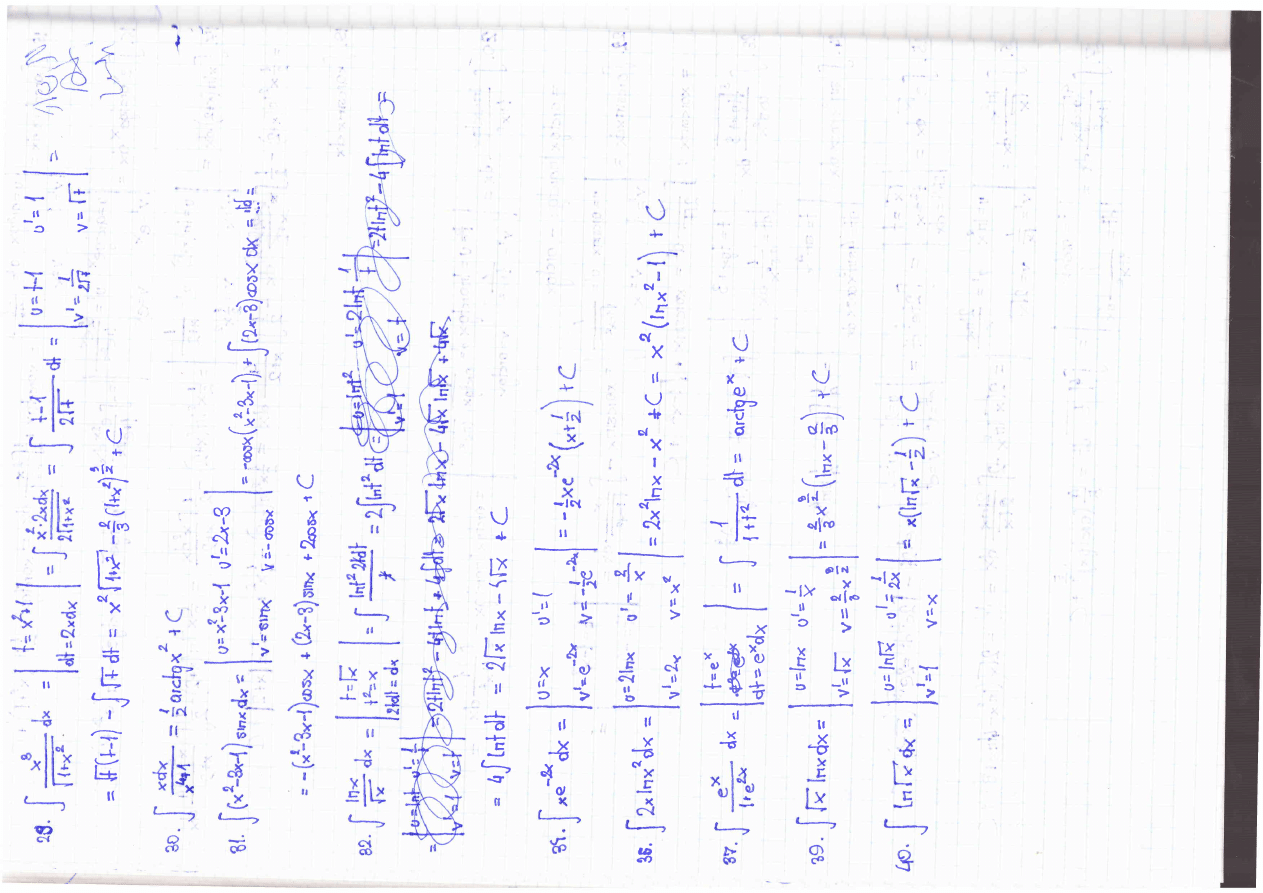 29. ∫ x³/√(1+x²) dx = | t=x²+1 dt=2xdx | = ∫ x²·2xdx/(2√(1+x²)) = ∫ (t-1)/(2√t) dt = | u=t-1 u'=1 v'=1/(2√t) v=√t | =
= √t(t-1) - ∫√t dt = x²√(1+x²) - 2/3(1+x²)^(3/2) + C
30. ∫ xdx/(x⁴+1) = 1/2 arctgx² + C
31. ∫(x²-3x-1)sinxdx = | u=x²-3x-1 u'=2x-3 v'=sinx v=-cosx | = -cosx(x²-3x-1) + ∫(2x-3)cosx dx =
= -(x²-3x-1)cosx + (2x-3)sinx + 2cosx + C
32. ∫ lnx/√x dx = | t=√x t²=x 2tdt=dx | = ∫ lnt² 2tdt/t = 2∫lnt² dt = | u=lnt² u'=2lnt 1/t v'=1 v=t | = 2tlnt² - 4∫lntdt =
= | u=lnt u'=1/t v'=1 v=t | = 2tlnt² - 4tlnt + 4∫dt = 2√x lnx - 4√x ln√x + 4√x
= 4∫lntdt = 2√x lnx - 4√x + C
34. ∫xe^(-2x) dx = | u=x u'=1 v'=e^(-2x) v=-1/2e^(-2x) | = -1/2xe^(-2x)(x+1/2) + C
36. ∫2xlnx²dx = | u=2lnx u'=2/x v'=2x v=x² | = 2x²lnx - x² + C = x²(lnx²-1) + C
37. ∫ e^x/(1+e^(2x)) dx = | t=e^x dt=e^x dx | = ∫ 1/(1+t²) dt = arctge^x + C
39. ∫√x lnxdx = | u=lnx u'=1/x v'=√x v=2/3x^(3/2) | = 2/3x^(3/2)(lnx - 2/3) + C
40. ∫ln√x dx = | u=ln√x u'=1/2x v'=1 v=x | = x(ln√x - 1/2) + C